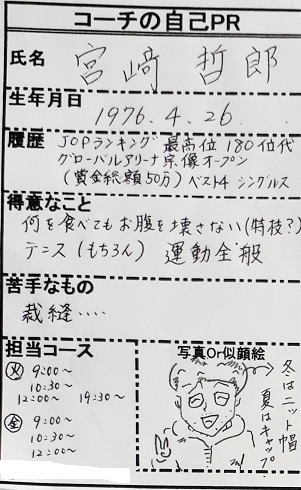 コーチの自己PR
氏名 宮﨑 哲郎
生年月日
1976.4.26.
履歴 JOPランキング 最高位 180位代
グローバルアリーナ宗像オープン
(賞金総額50万) ベスト4 シングルス
得意なこと
何を食べてもお腹を壊さない(特技?)
テニス(もちろん) 運動全般
苦手なもの
裁縫‥‥
担当コース
火 9:00~
10:30~
12:00~ 19:30~
金 9:00~
10:30~
12:00~
写真Or似顔絵
冬はニット帽
夏はキャップ